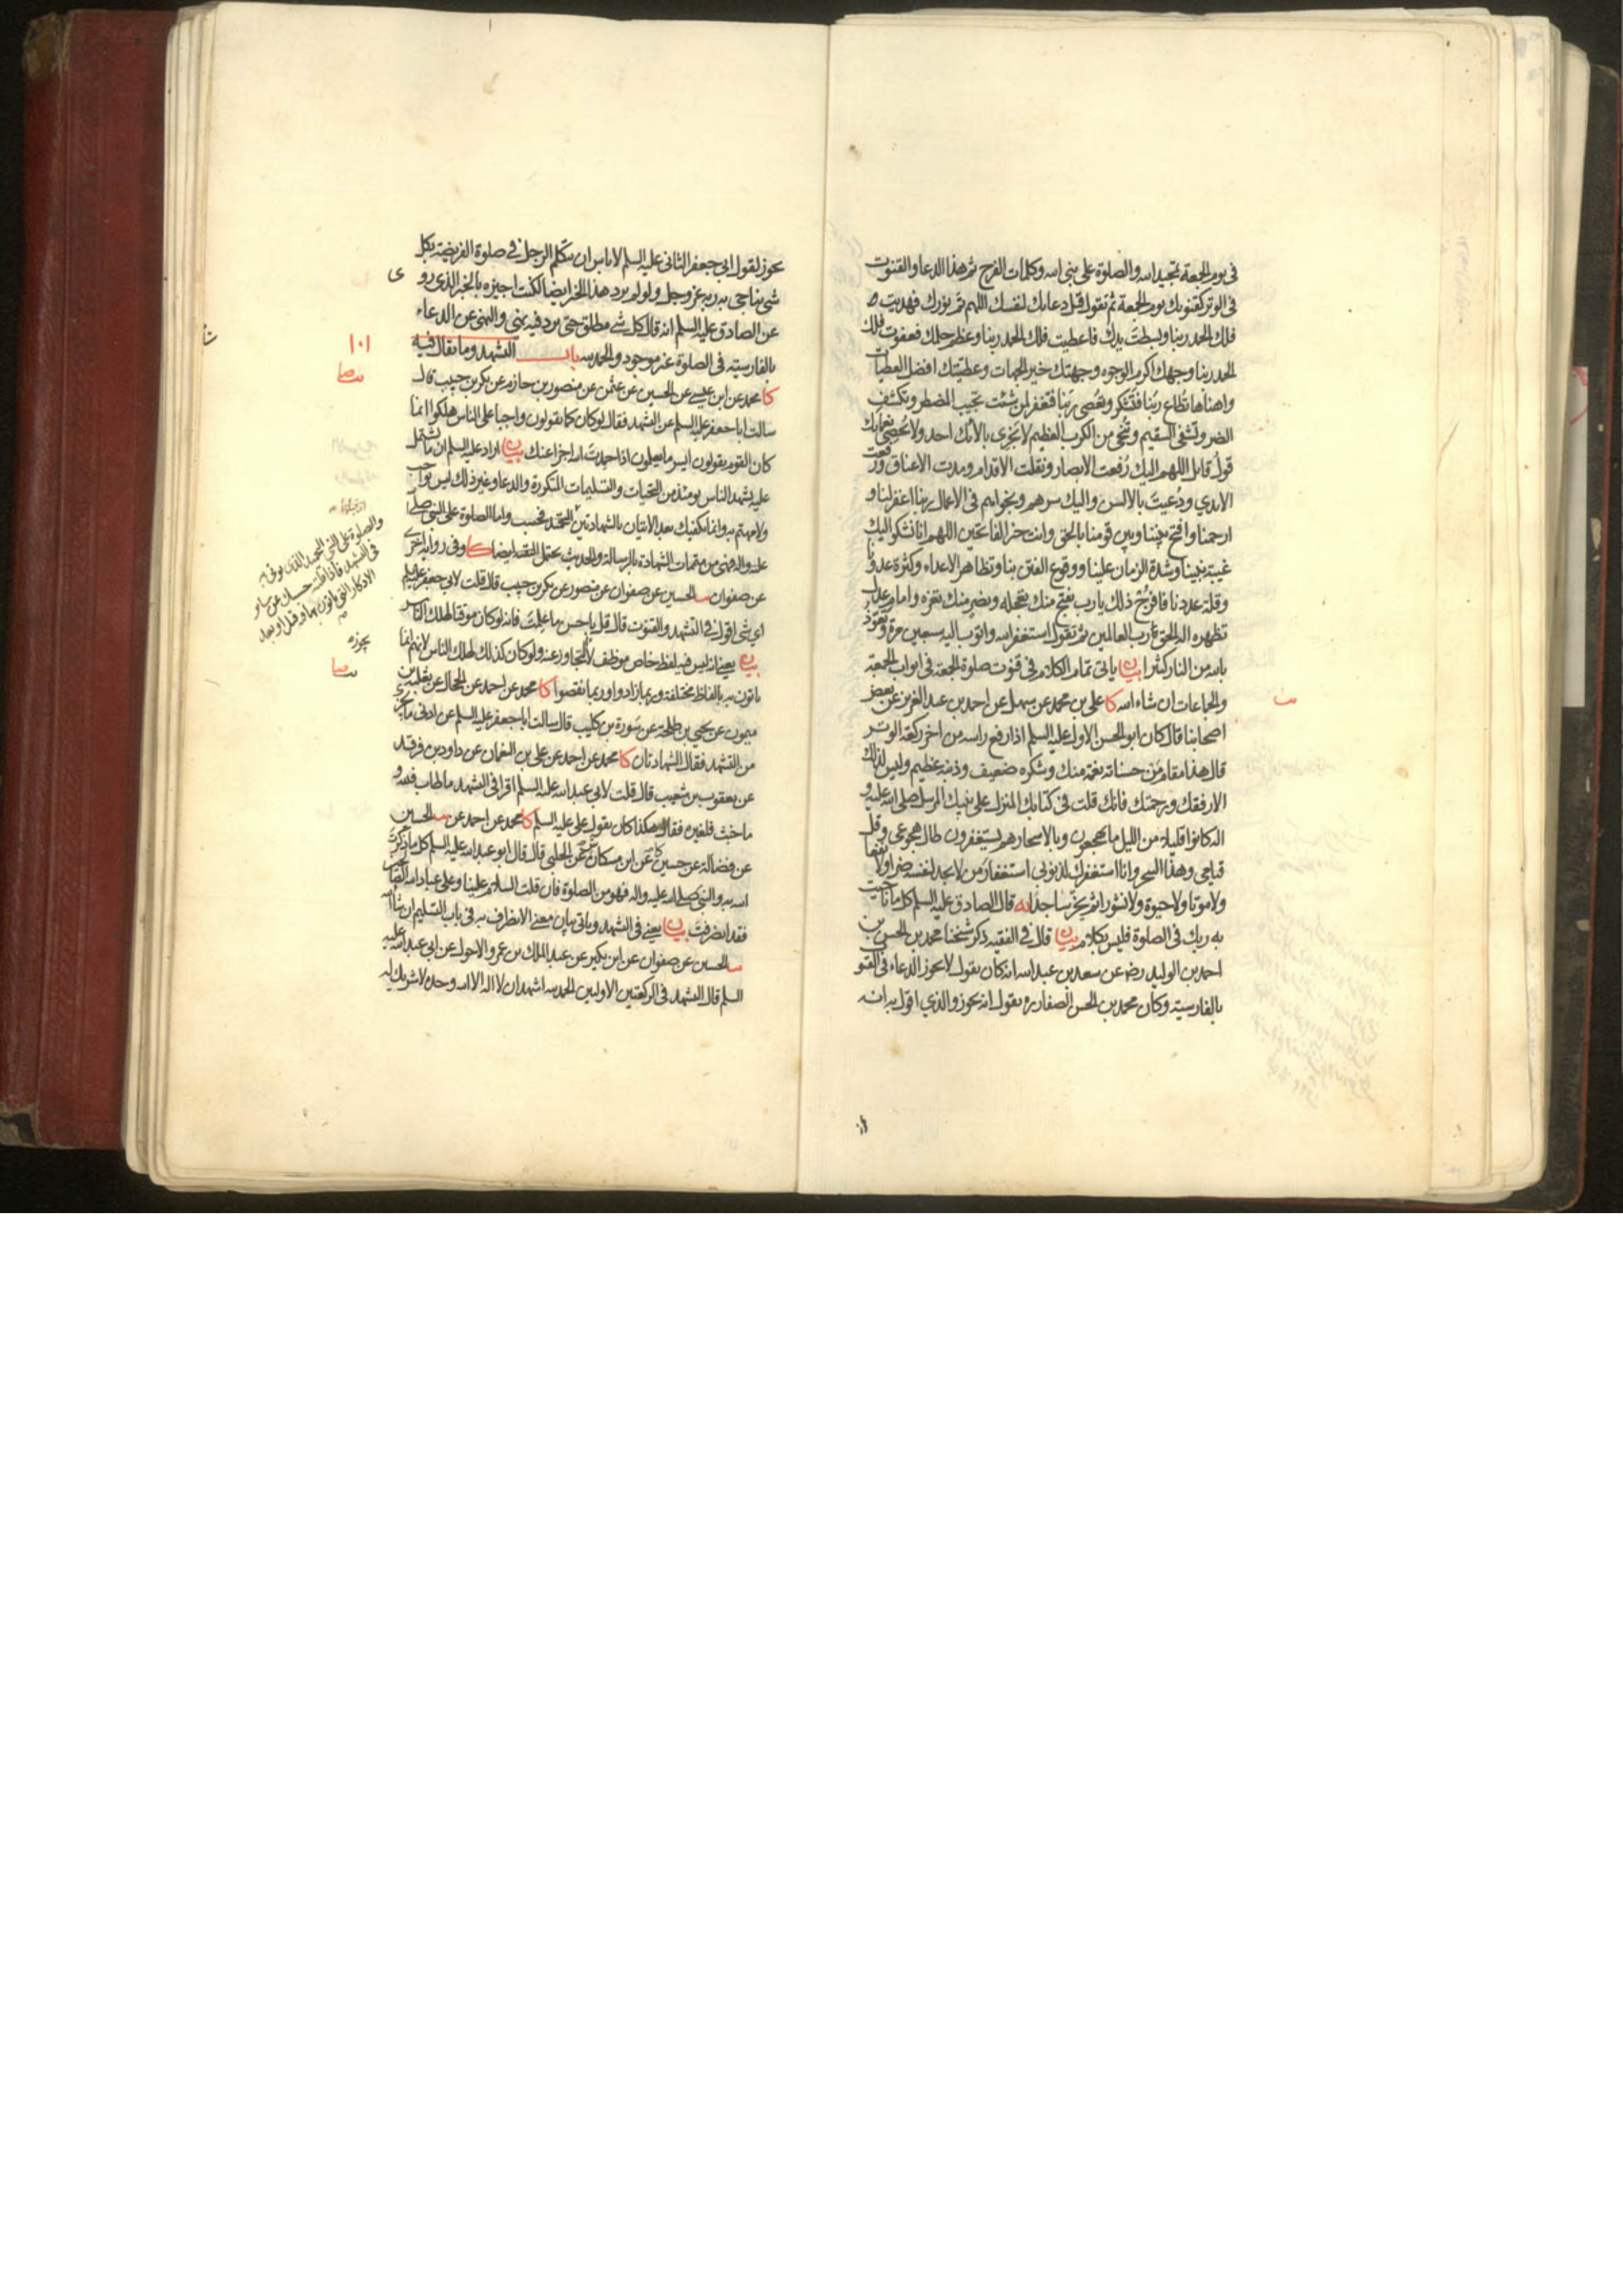 في يوم الجمعة تمجيد الله والصلوة على نبي الله وكلمات الفرج ثم هذا الدعا والقنوت
في الوتر كقنوتك يوم الجمعة ثم تقول قبل دعائك لنفسك اللهم تم نورك فهديت
فلك الحمد ربنا وبسطت يدك فاعطيت فلك الحمد ربنا وعظم حلمك فعفوت فلك
الحمد ربنا وجهك اكرم الوجوه وجهتك خير الجهات وعطيتك افضل العطيات
واهناها تطاع ربنا فتشكر وتعصى ربنا فتغفر لمن شئت تجيب المضطر وتكشف
الضر وتشفي السقيم وتنجي من الكرب العظيم لا يجزي بالائك احد ولا يحصي نعمائك
قول قائل اللهم اليك رفعت الابصار ونقلت الاقدام ومدت الاعناق ورفعت
الايدي ودعيت بالالسن واليك سرهم ونجواهم في الاعمال ربنا اغفر لنا و
ارحمنا وافتح بيننا وبين قومنا بالحق وانت خير الفاتحين اللهم انا نشكو اليك
غيبة نبينا وشدة الزمان علينا ووقوع الفتن بنا وتظاهر الاعداء وكثرة عدونا
وقلة عددنا فافرج ذلك يا رب بفتح منك تعجله ونصر منك تعزه وامام عدل
تظهره اله الحق رب العالمين ثم تقول استغفر الله واتوب اليه سبعين مرة وتعوذ
بالله من النار كثيرا بيان ياتي تمام الكلام في قنوت صلوة الجمعة في ابواب الجمعة
والجماعات ان شاء الله كا علي بن محمد عن سهل عن احمد بن عبد العزيز عن بعض
اصحابنا قال كان ابو الحسن الاول عليه السلم اذا رفع راسه من اخر ركعة الوتر
قال هذا مقام من حسناته نعمة منك وشكره ضعيف وذنبه عظيم وليس لذلك
الا رفقك ورحمتك فانك قلت في كتابك المنزل على نبيك المرسل صلى الله عليه و
اله كانوا قليلا من الليل ما يهجعون وبالاسحار هم يستغفرون طال هجوعي وقل
قيامي وهذا السحر وانا استغفرك لذنوبي استغفار من لا يجد لنفسه ضرا ولا نفعا
ولا موتا ولا حيوة ولا نشورا ثم يخر ساجدا يه قال الصادق عليه السلم كل ما ناجيت
به ربك في الصلوة فليس بكلام بيان قال في الفقيه ذكر شيخنا محمد بن الحسن بن
احمد بن الوليد رضه عن سعد بن عبد الله انه كان يقول لا يجوز الدعاء في القنو
بالفارسية وكان محمد بن الحسن الصفار ره يقول انه يجوز والذي اقول به انه
يجوز لقول ابي جعفر الثاني عليه السلم لا باس ان يتكلم الرجل في صلوة الفريضة بكل
شئ يناجي به ربه عز وجل ولو لم يرد هذا الخبر ايضا لكنت اجيزه بالخبر الذي روي
عن الصادق عليه السلم انه قال كل شئ مطلق حتى يرد فيه نهي والنهي عن الدعاء
بالفارسية في الصلوة غير موجود والحمد لله باب التشهد وما يقال فيه
١٠١
كا محمد عن ابن عيسى عن الحسين عن عثمن عن منصور بن حازم عن بكر بن حبيب قال
سالت ابا جعفر عليه السلم عن التشهد فقال لو كان كما يقولون واجبا على الناس هلكوا انما
كان القوم يقولون ايسر ما يعلمون اذا حمدت الله اجزا عنك بيان اراد عليه السلم ان ما يشتمل
عليه تشهد الناس يومئذ من التحيات والتسليمات المتكررة والدعا وغير ذلك ليس بواجب
ولا مهتم به وانما يكفيك بعد الاتيان بالشهادتين التحميد فحسب واما الصلوة على النبي صلى
عليه واله فهي من متممات الشهادة بالرسالة والحديث يحتمل التقية ايضا كا وفي رواية اخرى
عن صفوان الحسين عن صفوان عن منصور عن بكر بن حبيب قال قلت لابي جعفر عليه السلم
اي شئ اقول في التشهد والقنوت قال قل باحسن ما علمت فانه لو كان موقتا لهلك الناس
بيان يعني انه ليس فيه لفظ خاص موظف لا يتجاوز عنه ولو كان كذلك لهلك الناس لانهم انما
ياتون به بالفاظ مختلفة وربما زادوا وربما نقصوا كا محمد عن احمد عن الحجال عن ثعلبة بن
ميمون عن يحيى بن طلحة عن سورة بن كليب قال سالت ابا جعفر عليه السلم عن ادنى ما يجزي
من التشهد فقال الشهادتان كا محمد عن احمد عن علي بن النعمان عن داود بن فرقد
عن يعقوب بن شعيب قال قلت لابي عبد الله عليه السلم اقرا في التشهد ما طاب فلله و
ما خبث فلغيره فقال هكذا كان يقول علي عليه السلم كا محمد عن احمد عن الحسين
عن فضالة عن حسين عن ابن مسكان عن الحلبي قال قال ابو عبد الله عليه السلم كل ما ذكرت
الله به والنبي صلى الله عليه واله فهو من الصلوة فان قلت السلام علينا وعلى عباد الله الصالحين
فقد انصرفت بيان يعني في التشهد وياتي بيان معنى الانصراف به في باب التسليم ان شاء الله
الحسين عن صفوان عن ابن بكير عن عبد الملك بن عمرو الاحول عن ابي عبد الله عليه
السلم قال التشهد في الركعتين الاوليين الحمد لله اشهد ان لا اله الا الله وحده لا شريك له